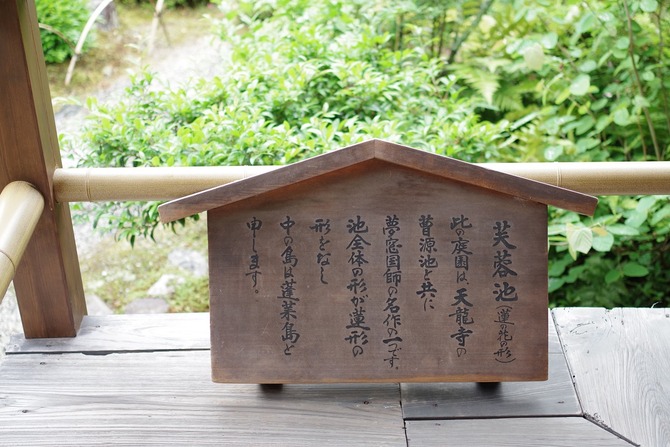 芙蓉池（蓮の花の形）
此の庭園は、天龍寺の
曹源池と共に
夢窓国師の名作の一つです。
池全体の形が蓮形の
形をなし
中の島は蓬莱島と
申します。